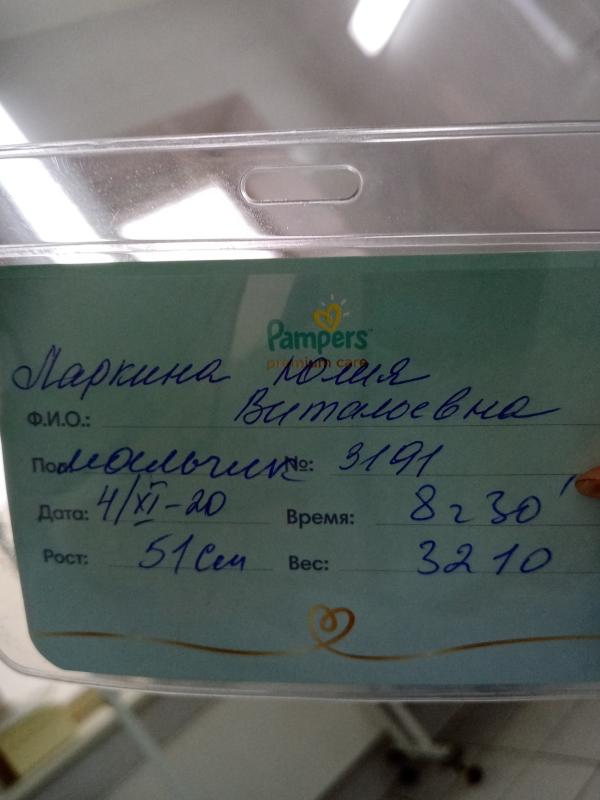 Pampers
premium care
Ларкина Юлия
Ф.И.О.: Виталоевна
Пол: мальчик №: 3191
Дата: 4/XI-20 Время: 8г 30'
Рост: 51см Вес: 3210